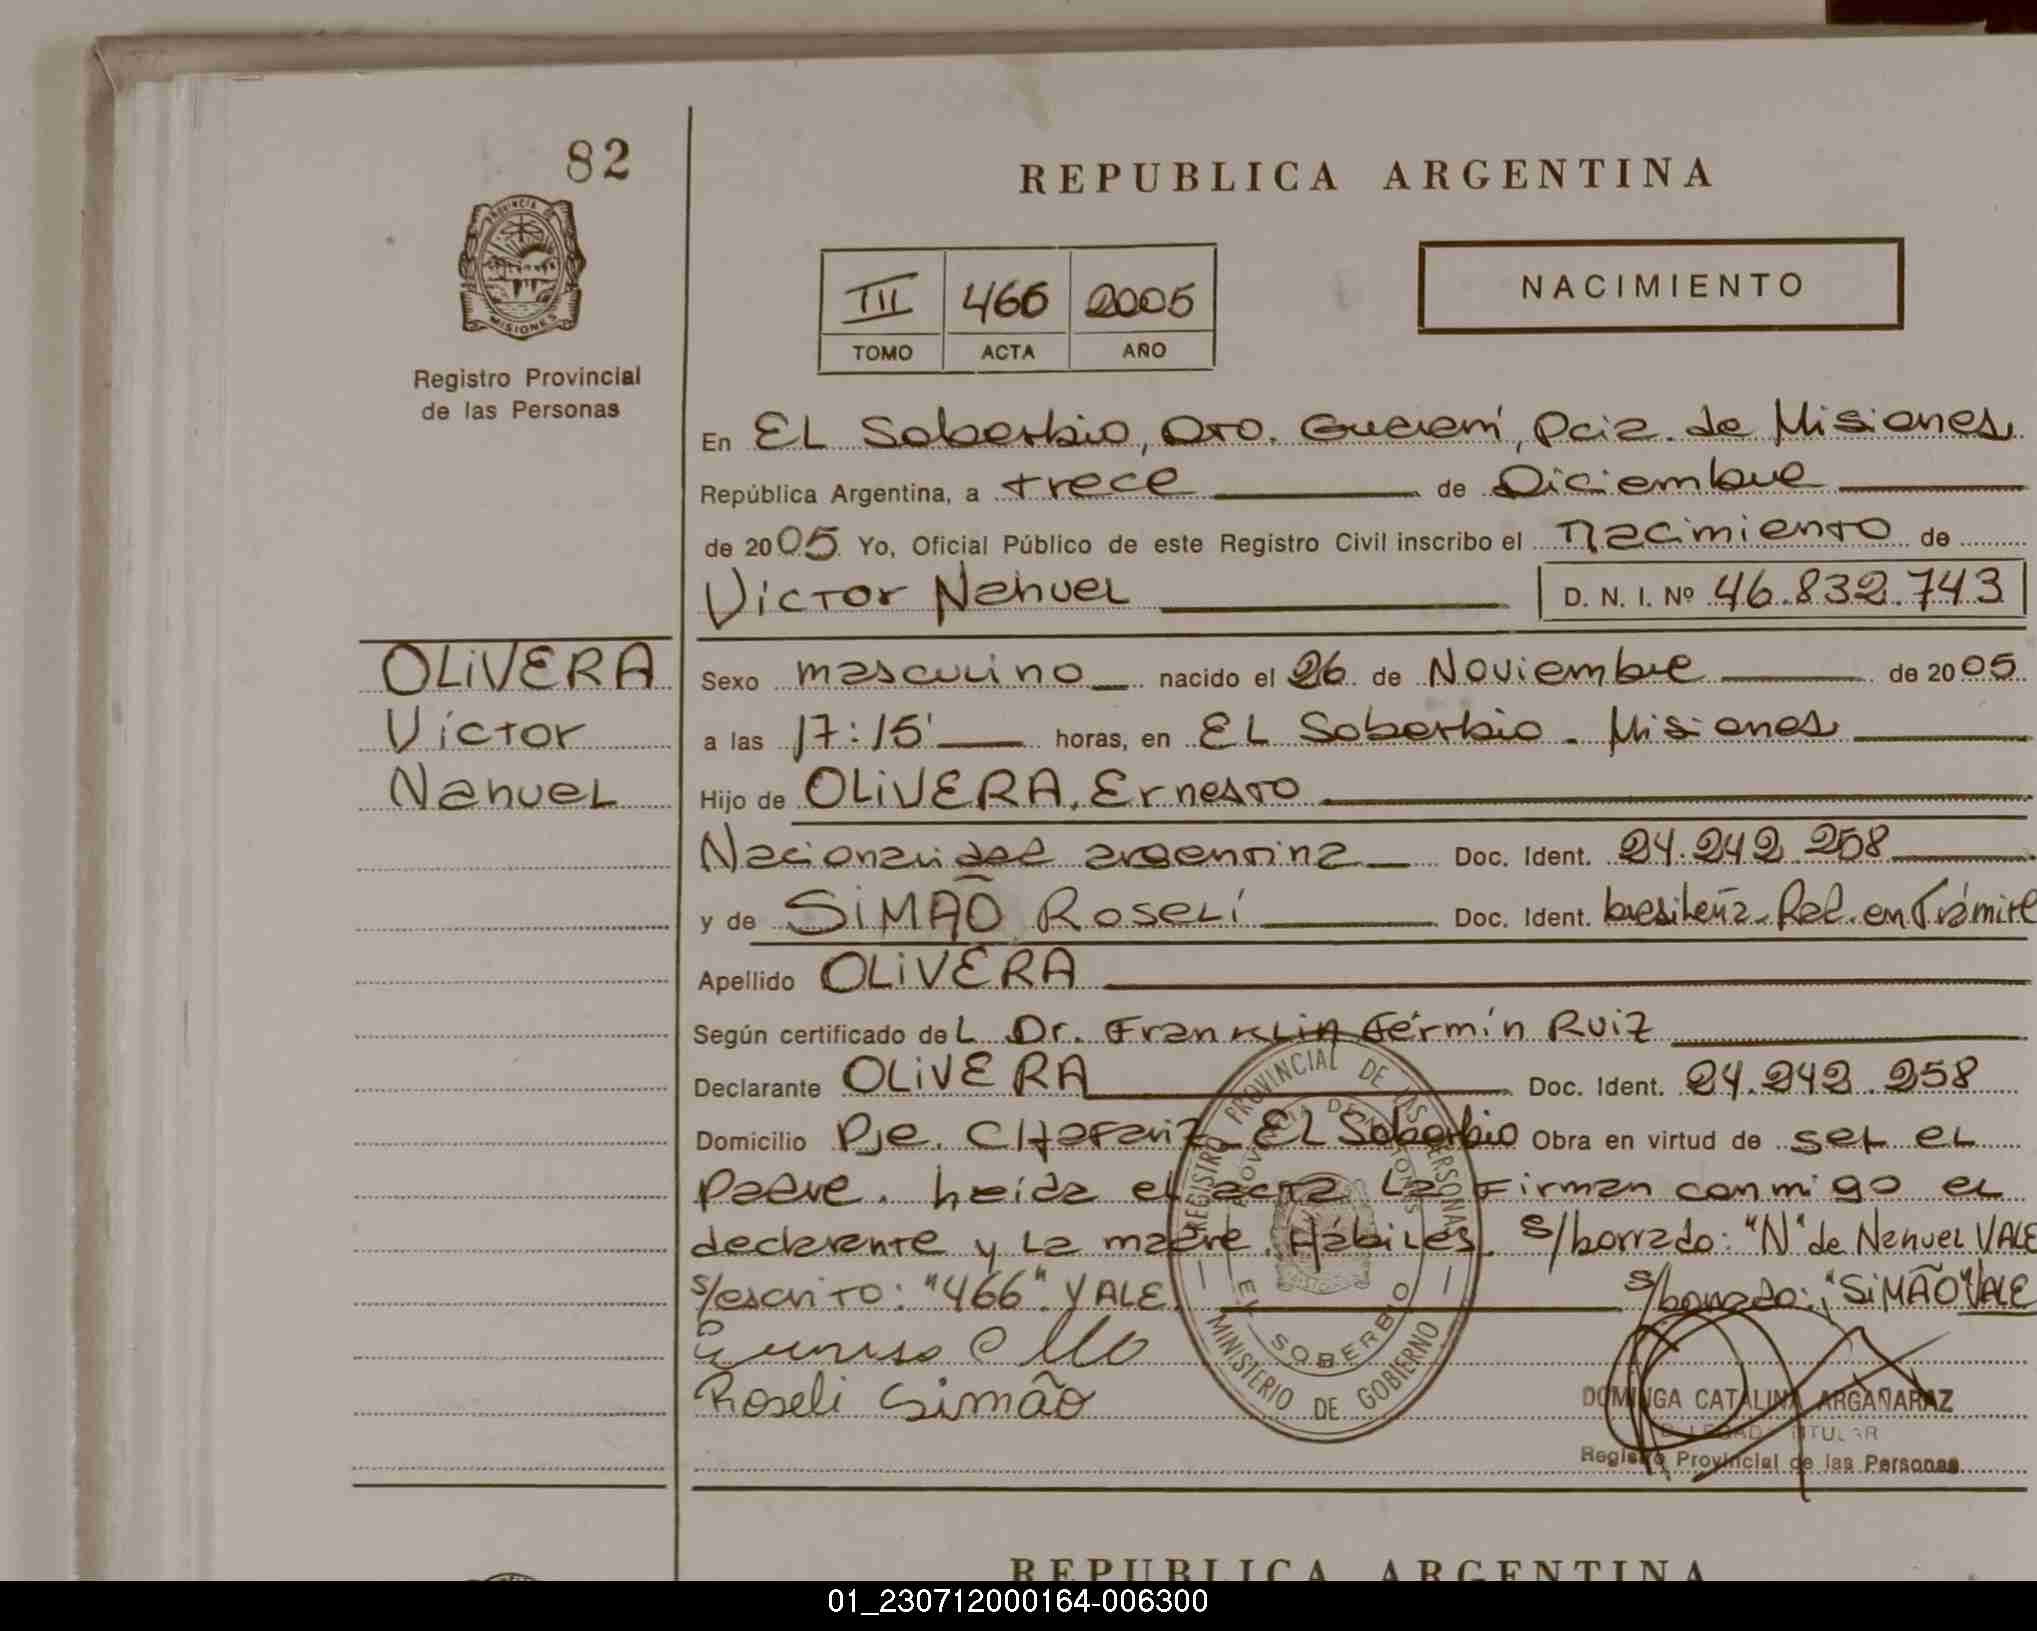 82
REPUBLICA ARGENTINA
PROVINCIA DE
MISIONES
Registro Provincial
de las Personas
III 466 2005
TOMO ACTA AÑO
NACIMIENTO
En EL Soberbio, Dto. Guaraní, Pcia. de Misiones
República Argentina, a trece de Diciembre
de 2005 Yo, Oficial Público de este Registro Civil inscribo el nacimiento de
Victor Nahuel D. N. I. Nº 46.832.743
OLiVERA
Víctor
Nahuel
Sexo masculino nacido el 26 de Noviembre de 2005
a las 17:15' horas, en EL Soberbio - Misiones
Hijo de OLiVERA, Ernesto
Nacionalidad argentina Doc. Ident. 24.242.258
y de SiMAÕ Roselí Doc. Ident. brasileña Rad. en Trámite
Apellido OLiVERA
Según certificado deL Dr. Franklin Fermín Ruiz
Declarante OLiVERA Doc. Ident. 24.242.258
Domicilio Pje. CHafariz EL Soberbio Obra en virtud de ser eL
Padre. Leída el acta La Firman conmigo eL
declarante y La madre. Hábiles. s/borrado: "N" de Nahuel VALE
s/escrito: "466". VALE. s/borrado: "SiMÃO" VALE
Roseli Simão
REGISTRO PROVINCIAL DE LAS PERSONAS
PROVINCIA DE MISIONES
EL SOBERBIO
MINISTERIO DE GOBIERNO
DOMINGA CATALINA ARGAÑARAZ
DELEGADA TITULAR
Registro Provincial de las Personas
REPUBLICA ARGENTINA
01_230712000164-006300